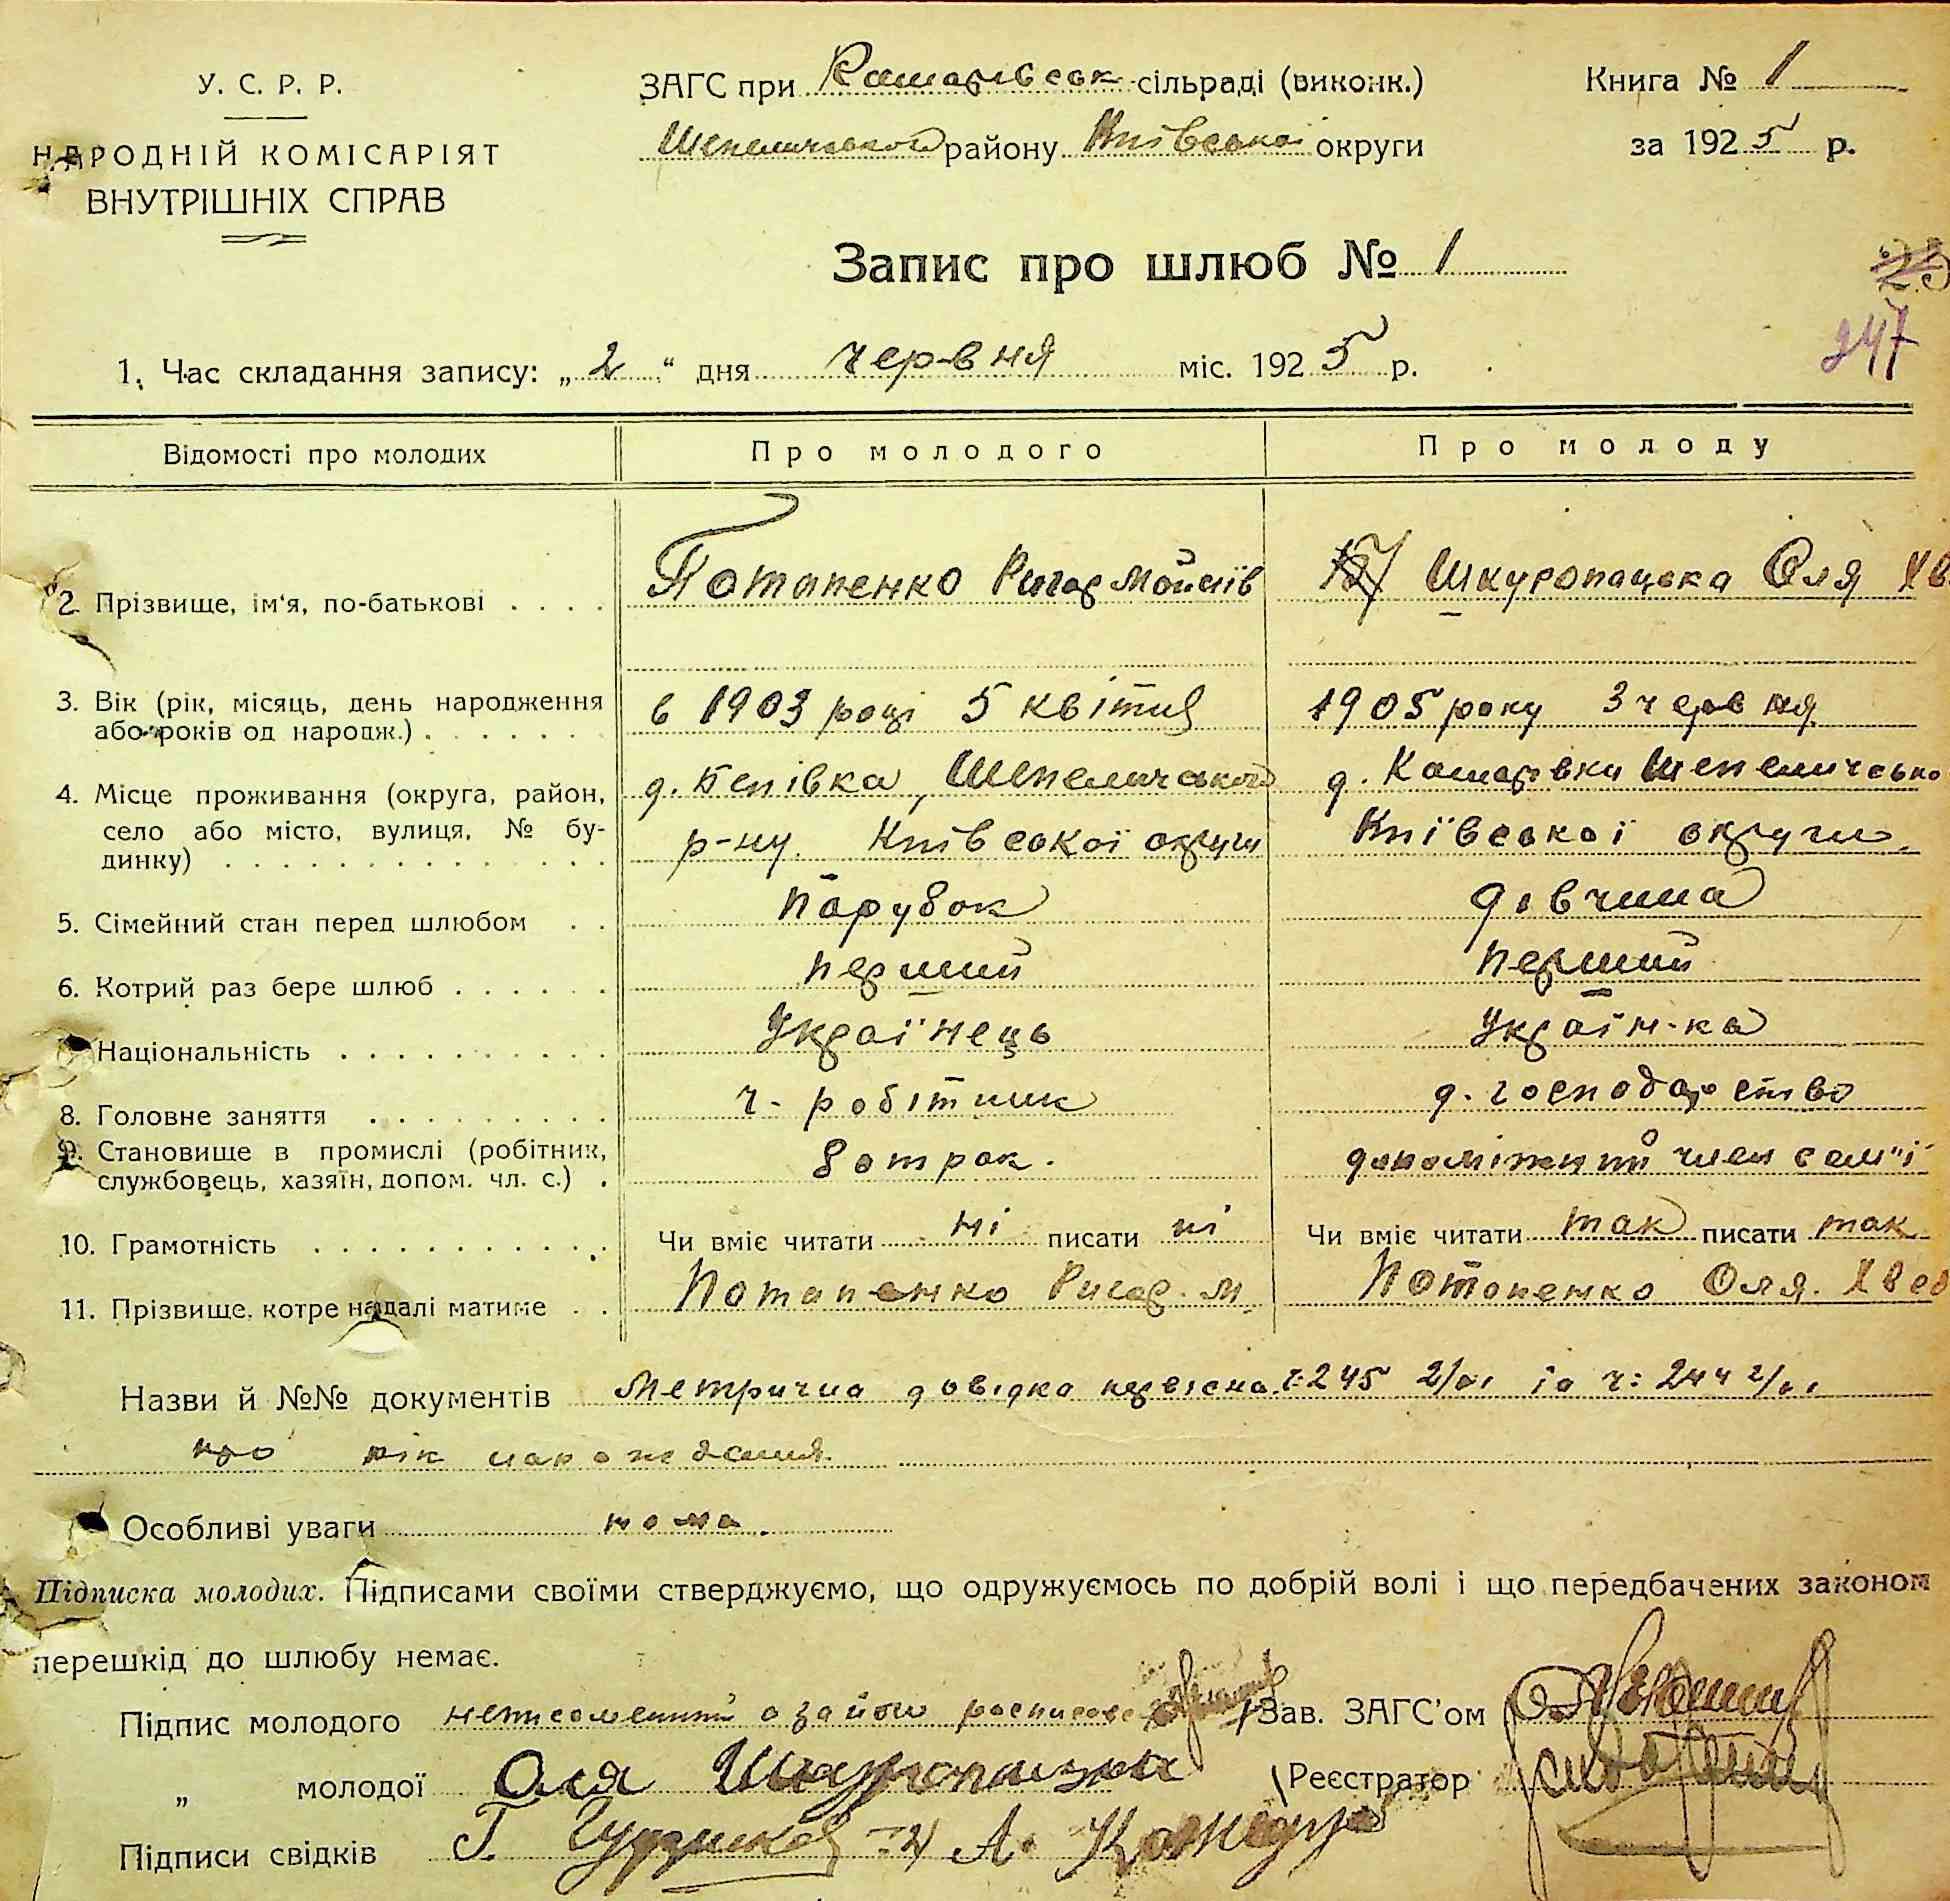 У. С. Р. Р.
НАРОДНІЙ КОМІСАРІЯТ
ВНУТРІШНІХ СПРАВ
ЗАГС при Кошарівськ сільраді (виконк.)
Шепелицького району Київської округи
Книга № 1
за 1925 р.
Запис про шлюб № 1
25
247
1. Час складання запису: „2“ дня червня міс. 1925 р.
Відомості про молодих Про молодого Про молоду
2. Прізвище, ім'я, по-батькові . . . . Потапенко Ригор Мойсіїв Шкуропацька Оля Хв
3. Вік (рік, місяць, день народження
або років од народж.) . . . . . . .
в 1903 році 5 квітня 1905 року 3 червня
4. Місце проживання (округа, район,
село або місто, вулиця, № бу-
динку) . . . . . . . . . . . . . .
р-ну Київської округи
д. Кошарівки Шепелицько
Київської округи
5. Сімейний стан перед шлюбом . . Парубок дівчина
6. Котрий раз бере шлюб . . . . . . перший перший
Національність . . . . . . . . . . Українець Українка
8. Головне заняття . . . . . . . . . ч. робітник д. господарство
9. Становище в промислі (робітник,
службовець, хазяїн, допом. чл. с.) .
батрак. допоміжний член сем"ї
10. Грамотність . . . . . . . . . . . . Чи вміє читати ні писати ні Чи вміє читати так писати так
11. Прізвище, котре надалі матиме . . Потапенко Ригор. М. Потопенко Оля. Хвед
Назви й №№ документів Метрична довідка ч: 245 ч: 244
про рік народження.
Особливі уваги нома.
Підписка молодих. Підписами своїми стверджуємо, що одружуємось по добрій волі і що передбачених законом
перешкід до шлюбу немає.
Підпис молодого неписьменний а за його росписався
Зав. ЗАГС'ом
„ молодої Оля
Реєстратор
Підписи свідків Г. А.